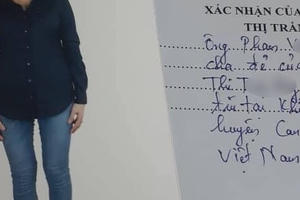 XÁC NHẬN CỦA
THỊ TRẤN
Ông Phan V
cha đẻ của
Thị T
tại Kh
huyện Can
Việt Nam